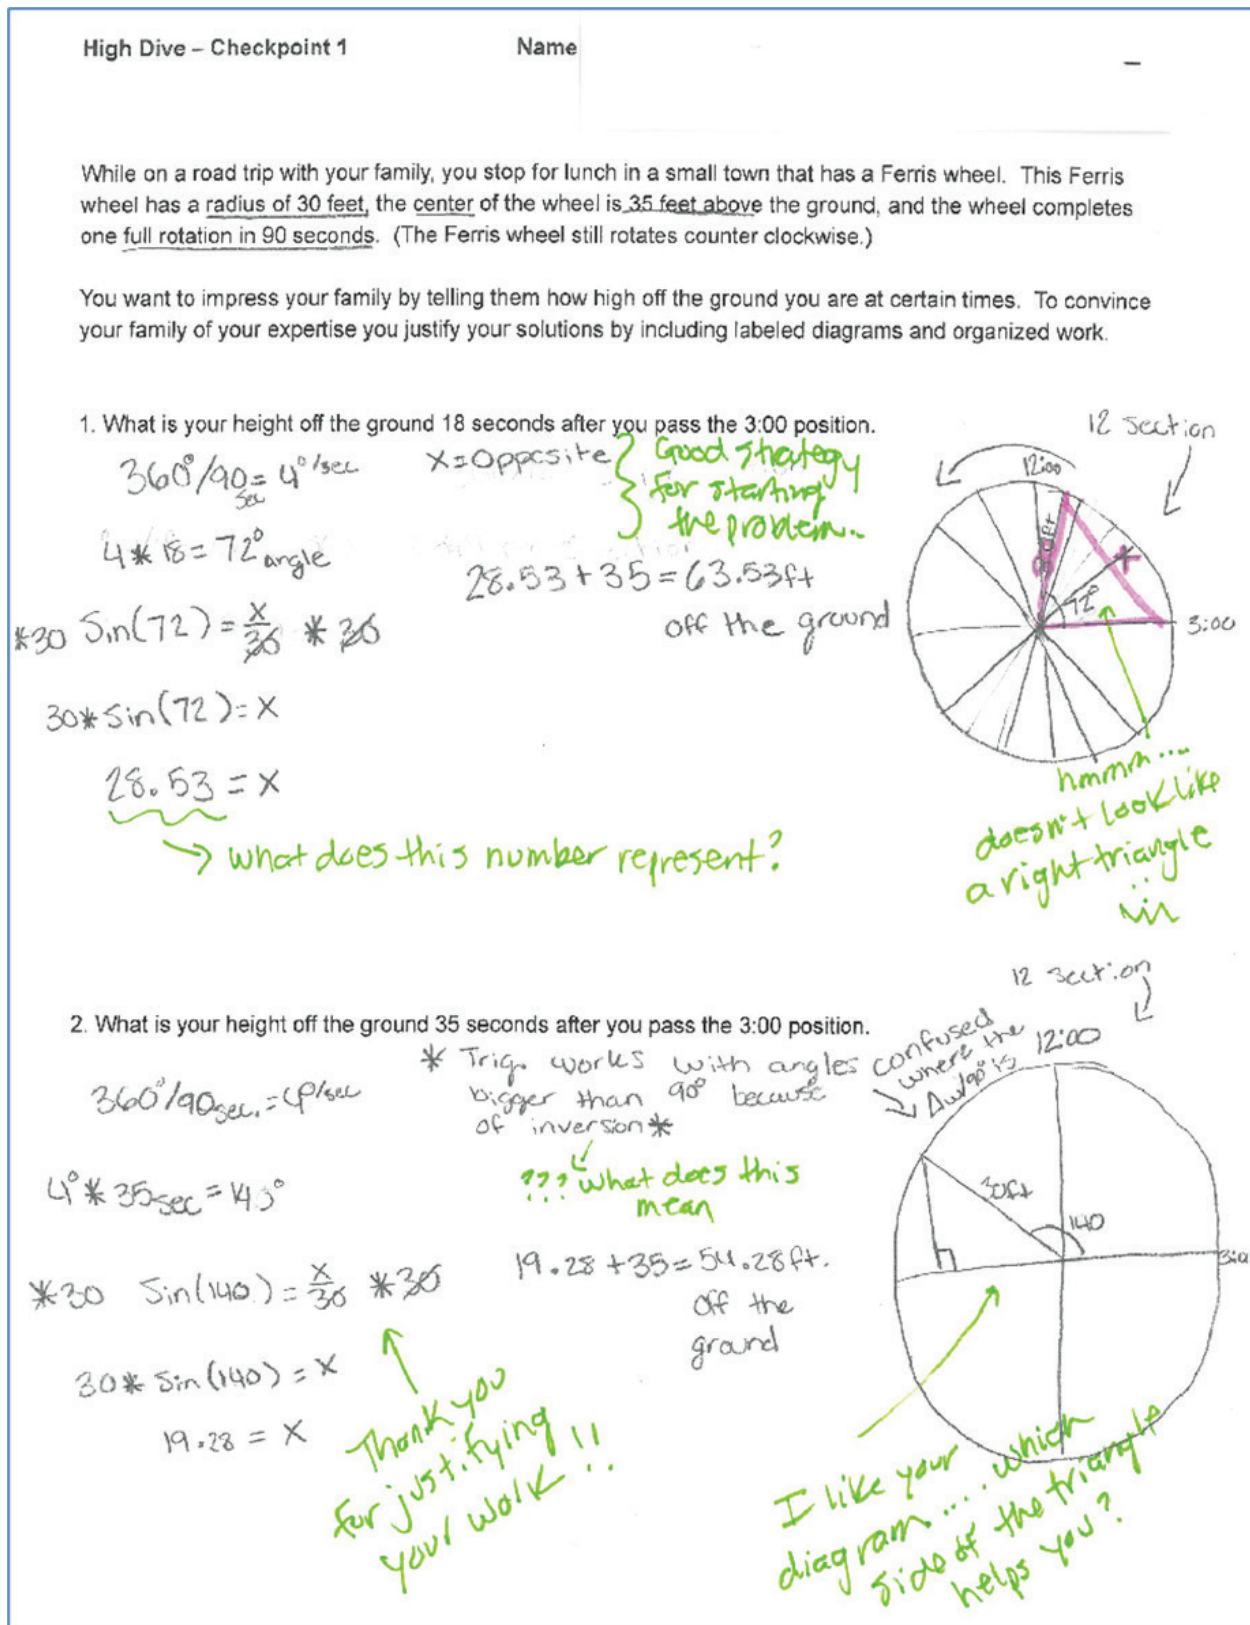 High Dive – Checkpoint 1 Name
While on a road trip with your family, you stop for lunch in a small town that has a Ferris wheel. This Ferris
wheel has a radius of 30 feet, the center of the wheel is 35 feet above the ground, and the wheel completes
one full rotation in 90 seconds. (The Ferris wheel still rotates counter clockwise.)
You want to impress your family by telling them how high off the ground you are at certain times. To convince
your family of your expertise you justify your solutions by including labeled diagrams and organized work.
1. What is your height off the ground 18 seconds after you pass the 3:00 position.
360°/90 sec = 4°/sec
4 * 18 = 72° angle
*30 Sin(72) = x/30 * 30
30* Sin(72) = X
28.53 = X
what does this number represent?
X = Opposite
Good strategy
for starting
the problem..
28.53 + 35 = 63.53ft
off the ground
12 Section
12:00
30ft
X
72°
3:00
hmmm....
doesn't look like
a right triangle
2. What is your height off the ground 35 seconds after you pass the 3:00 position.
360°/90sec. = 4°/sec
4° * 35sec = 140°
*30 Sin(140) = x/30 *30
30* Sin(140) = X
19.28 = X
Thank you
for justifying
your work!!
* Trig. works with angles
bigger than 90° because
of inversion *
??? what does this
mean
19.28 + 35 = 54.28ft.
off the
ground
12 Section
confused
where the
Δ w/ 90° is
12:00
30ft
140
3:00
I like your
diagram.... which
side of the triangle
helps you?